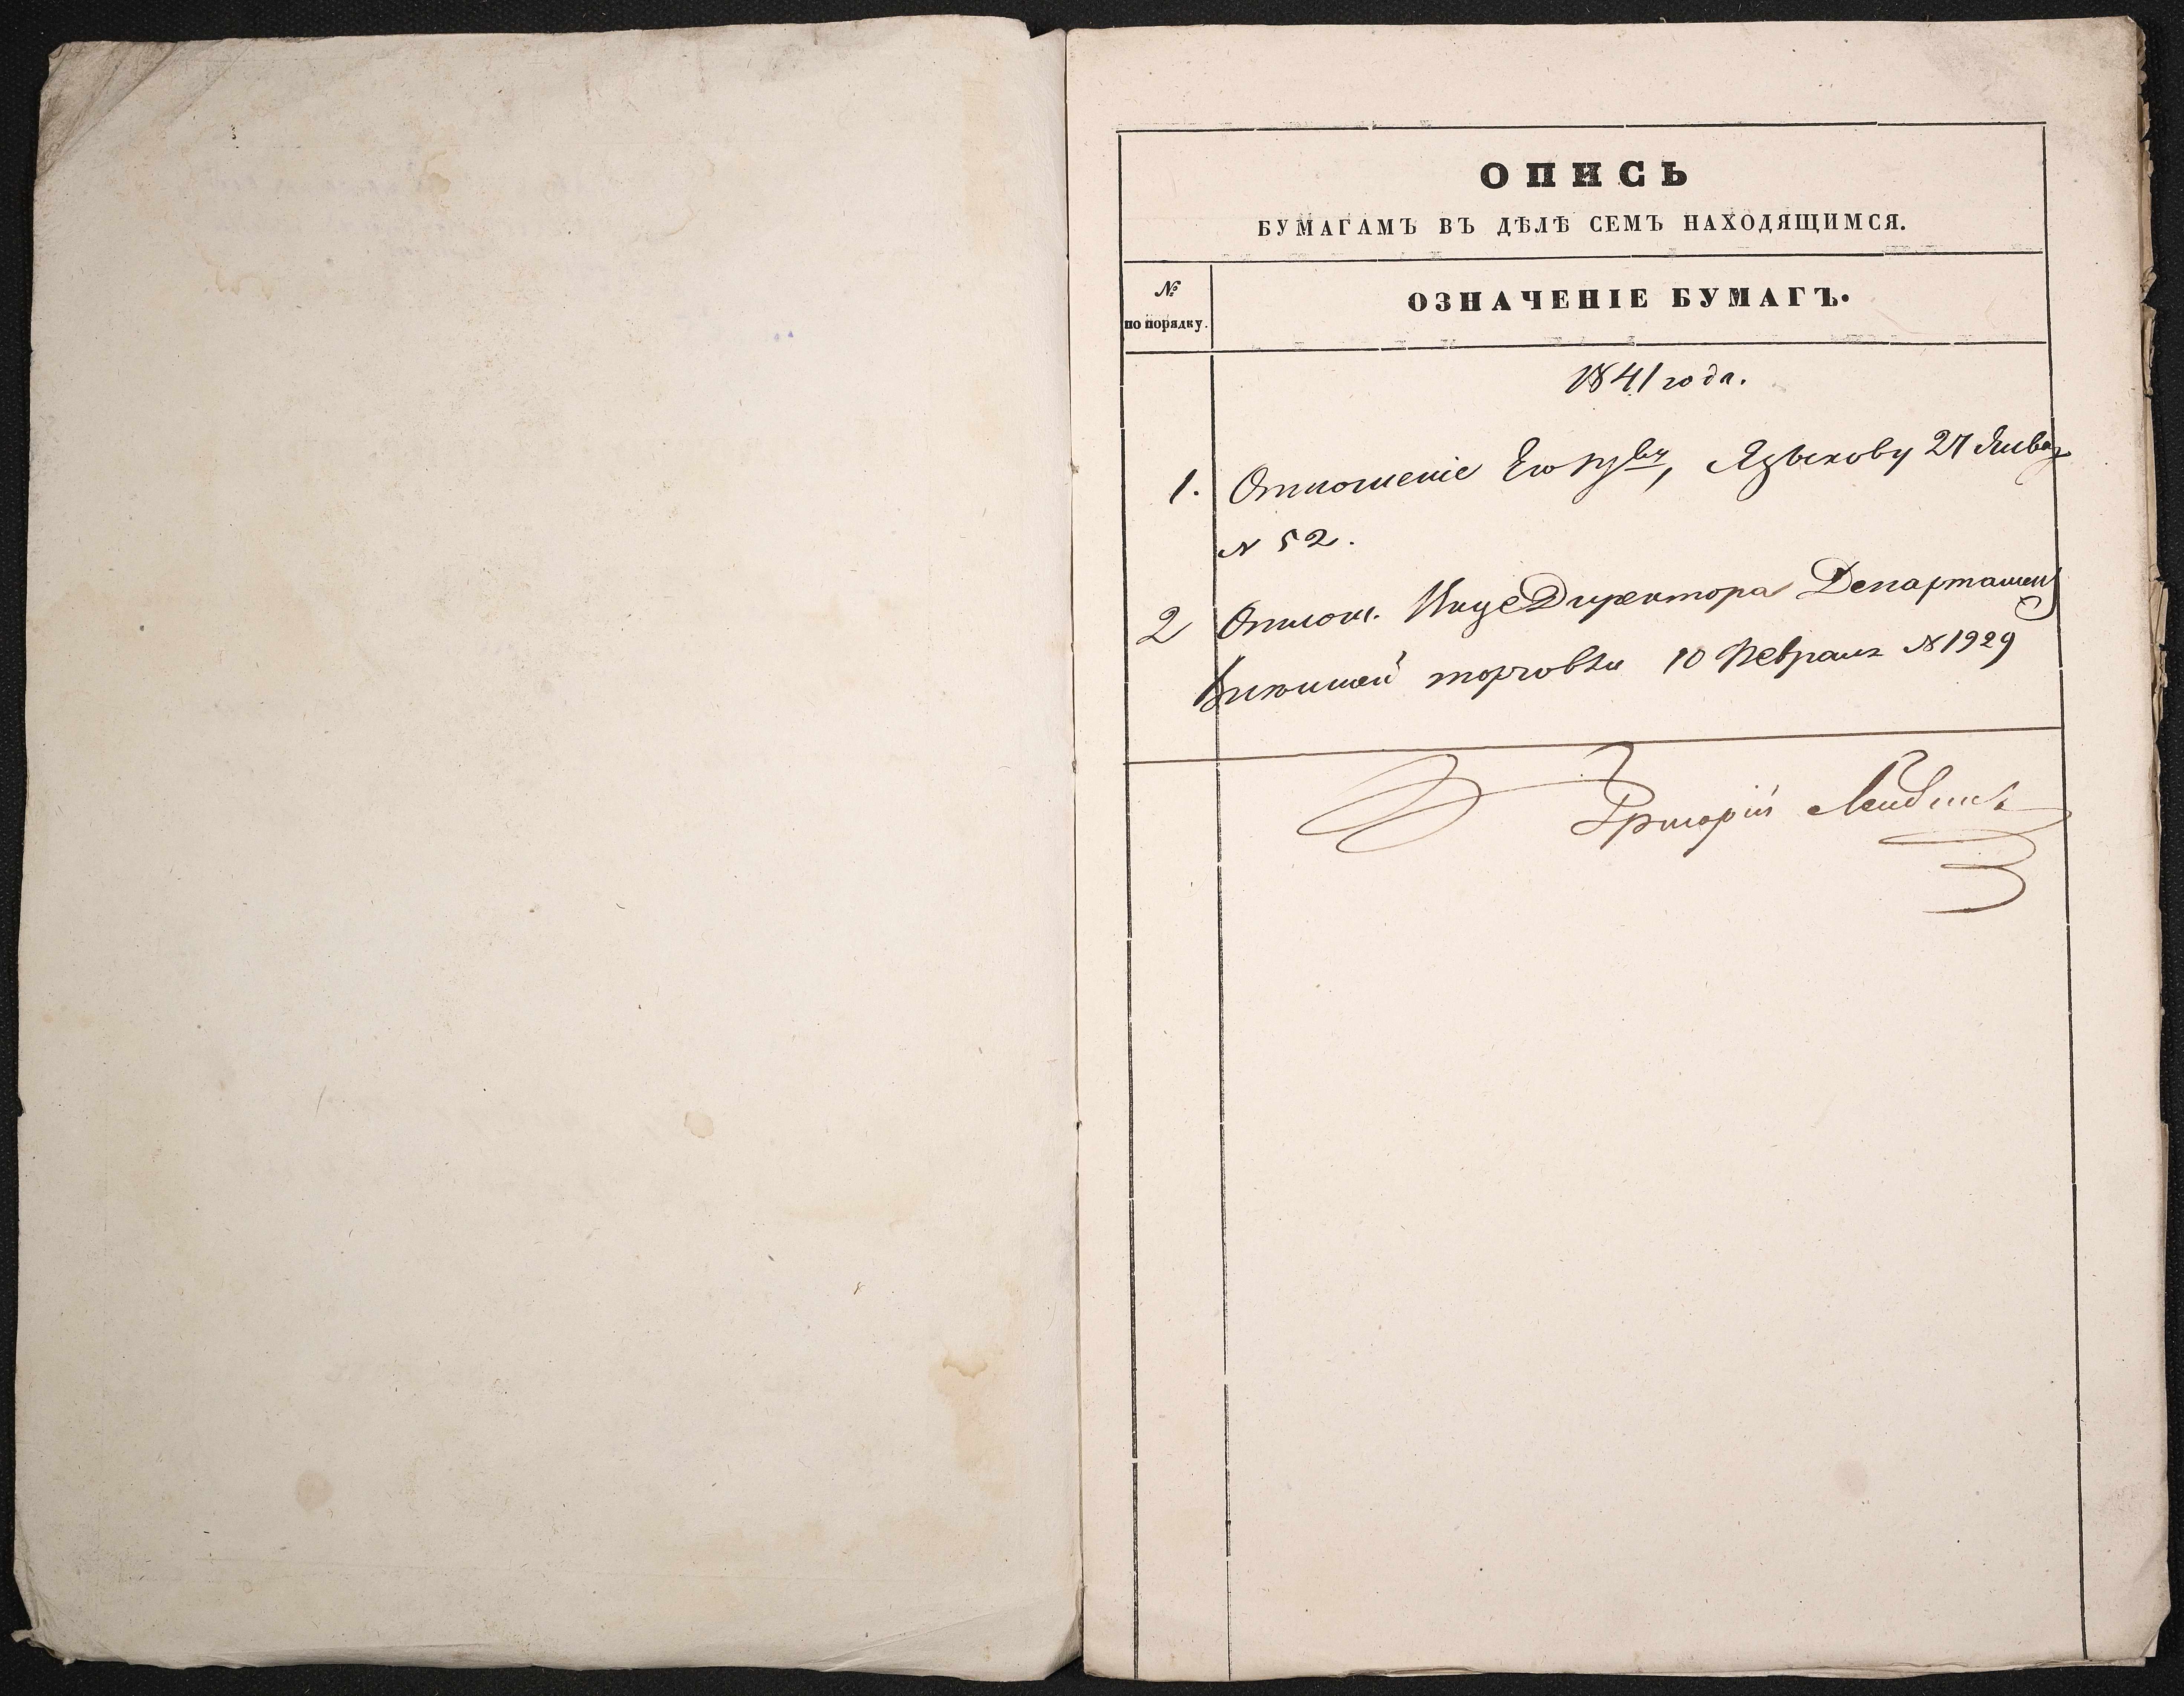 ОПИСЬ
БУМАГАМЪ ВЪ ДѢЛѢ СЕМЪ НАХОДЯЩИМСЯ.
№
по порядку.
ОЗНАЧЕНІЕ БУМАГЪ.
1841 года.
1. Отношеніе Его Пр-ву, Языкову 27 Январ
N 52.
2 Отнош. Вице Директора Департамен
Внѣшней торговли 10 Февраля №1929
Григорій